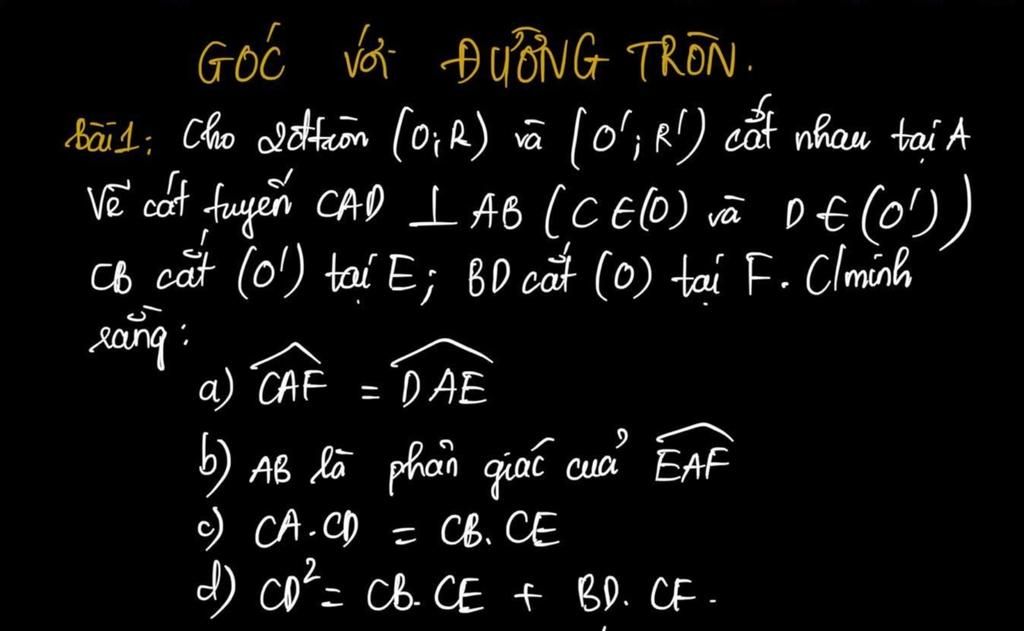 GÓC với ĐƯỜNG TRÒN.
bài 1: Cho 2 đ tròn (O;R) và (O';R') cắt nhau tại A
Vẽ cát tuyến CAD ⊥ AB (C∈(O) và D∈(O'))
CB cắt (O') tại E; BD cắt (O) tại F. C/minh
rằng:
a) \widehat{CAF} = \widehat{DAE}
b) AB là phân giác cuả \widehat{EAF}
c) CA.CD = CB.CE
d) CD² = CB.CE + BD.CF.